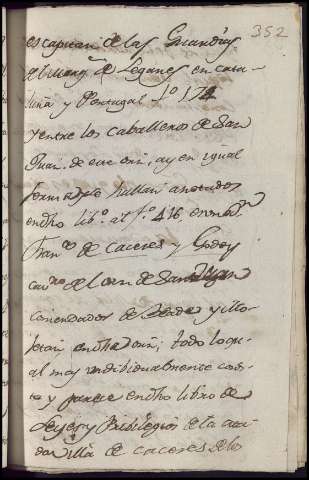 352
es capitan de las Guardias
del marq.s de Leganes en cata-
luña y Portugal fº 172
y entre los caballeros de San
Juan de esta orn, ay en igual
forma se hallan anotados
en dho libº al fº 416 en nomb.e
Franco de caceres y Godoy
cauro del orn de San Juan
comendador de y
en dha orn; todo lo qu-
al muy yndibidualmente cons-
ta y parece en dho libro de
Leyes y Pribilegios de la
villa de caceres de lo